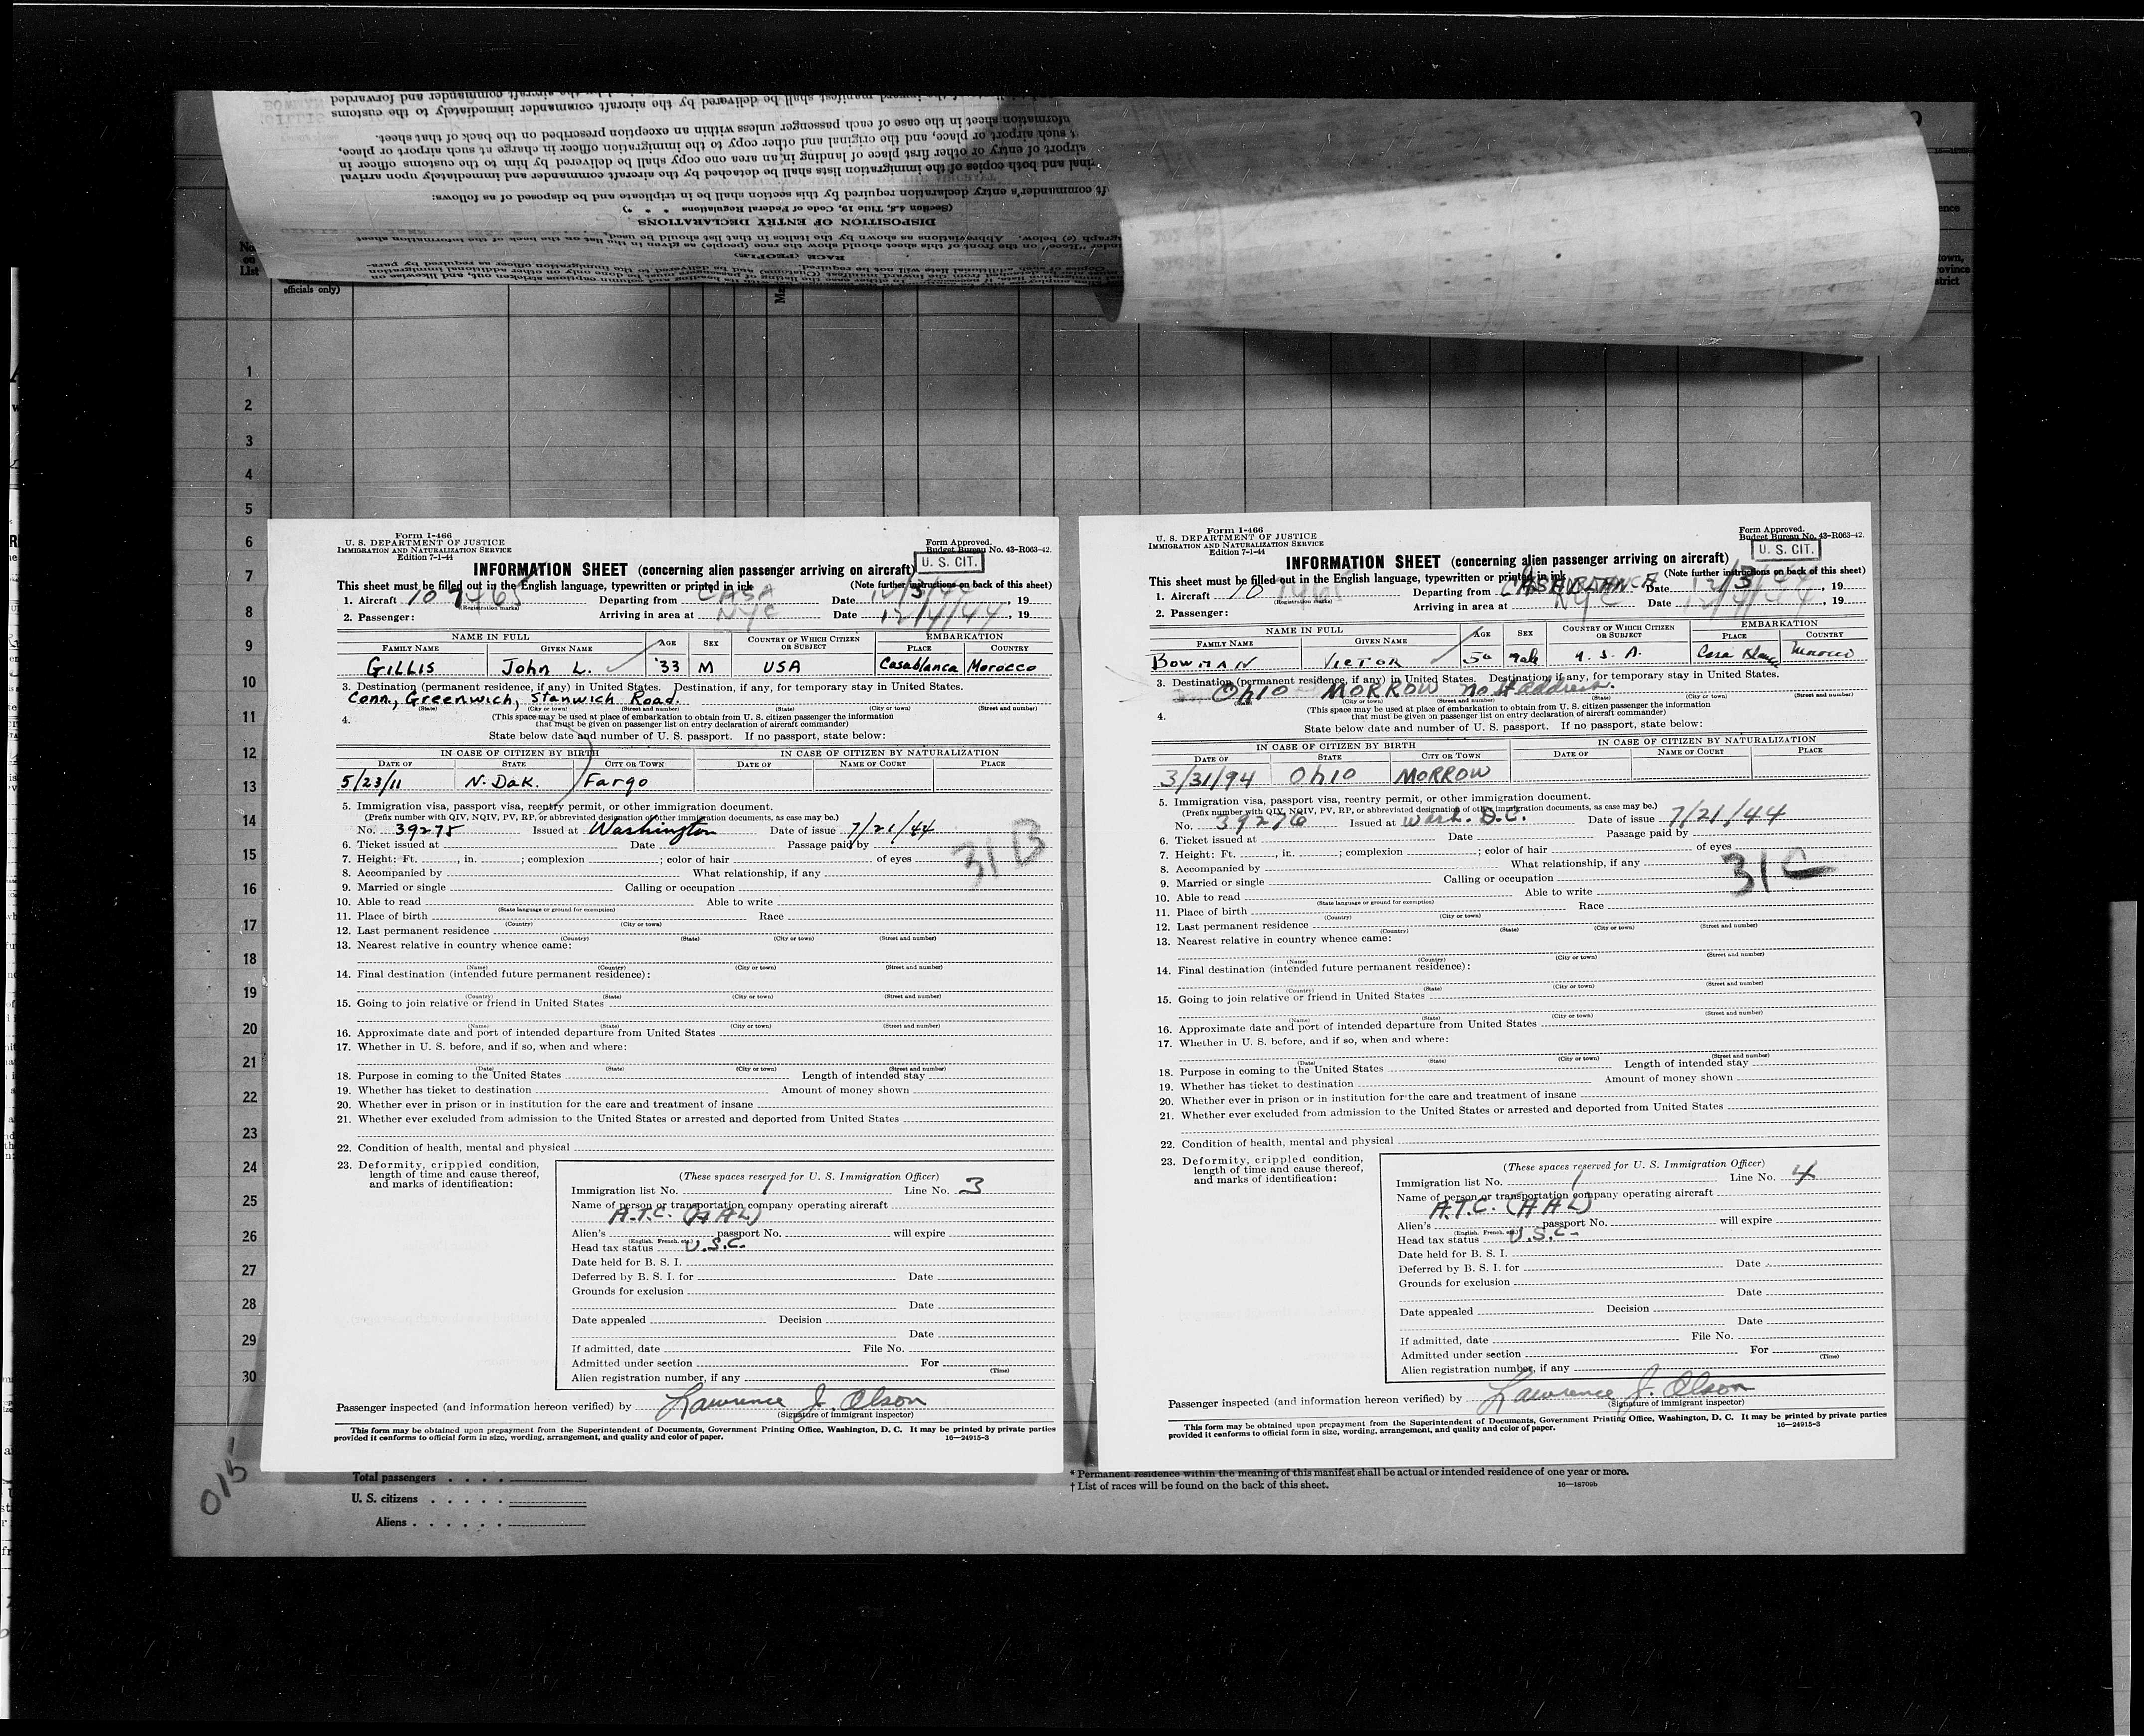 No.
on
List
officials only)
1
2
3
4
5
6
7
8
9
10
11
12
13
14
15
16
17
18
19
20
21
22
23
24
25
26
27
28
29
30
DISPOSITION OF ENTRY DECLARATIONS
(Section 4.8, Title 19, Code of Federal Regulations * * *)
RACE (PEOPLE)
Form I-466
U. S. DEPARTMENT OF JUSTICE
IMMIGRATION AND NATURALIZATION SERVICE
Edition 7-1-44
Form Approved.
Budget Bureau No. 43-R063-42.
U. S. CIT.
INFORMATION SHEET (concerning alien passenger arriving on aircraft)
This sheet must be filled out in the English language, typewritten or printed in ink (Note further instructions on back of this sheet)
1. Aircraft 107465 Departing from CASA Date 12/3/44, 19
(Registration marks)
2. Passenger: Arriving in area at NYC Date 12/4/44, 19
NAME IN FULL AGE SEX COUNTRY OF WHICH CITIZEN OR SUBJECT EMBARKATION
FAMILY NAME GIVEN NAME PLACE COUNTRY
GILLIS John L. '33 M USA Casablanca Morocco
3. Destination (permanent residence, if any) in United States. Destination, if any, for temporary stay in United States.
Conn., Greenwich, Stanwich Road.
(State) (City or town) (Street and number) (State) (City or town) (Street and number)
4. (This space may be used at place of embarkation to obtain from U. S. citizen passenger the information
that must be given on passenger list on entry declaration of aircraft commander)
State below date and number of U. S. passport. If no passport, state below:
IN CASE OF CITIZEN BY BIRTH IN CASE OF CITIZEN BY NATURALIZATION
DATE OF STATE CITY OR TOWN DATE OF NAME OF COURT PLACE
5/23/11 N. Dak. Fargo
5. Immigration visa, passport visa, reentry permit, or other immigration document.
(Prefix number with QIV, NQIV, PV, RP, or abbreviated designation of other immigration documents, as case may be.)
No. 39275 Issued at Washington Date of issue 7/21/44
6. Ticket issued at Date Passage paid by
31B
7. Height: Ft. , in. ; complexion ; color of hair of eyes
8. Accompanied by What relationship, if any
9. Married or single Calling or occupation
10. Able to read Able to write
(State language or ground for exemption)
11. Place of birth Race
(Country) (City or town)
12. Last permanent residence
(Country) (State) (City or town) (Street and number)
13. Nearest relative in country whence came:
(Name) (Country) (City or town) (Street and number)
14. Final destination (intended future permanent residence):
(Country) (State) (City or town) (Street and number)
15. Going to join relative or friend in United States
(Name) (State) (City or town) (Street and number)
16. Approximate date and port of intended departure from United States
17. Whether in U. S. before, and if so, when and where:
(Date) (State) (City or town) (Street and number)
18. Purpose in coming to the United States Length of intended stay
19. Whether has ticket to destination Amount of money shown
20. Whether ever in prison or in institution for the care and treatment of insane
21. Whether ever excluded from admission to the United States or arrested and deported from United States
22. Condition of health, mental and physical
23. Deformity, crippled condition,
length of time and cause thereof,
and marks of identification:
(These spaces reserved for U. S. Immigration Officer)
Immigration list No. 1 Line No. 3
Name of person or transportation company operating aircraft
A.T.C. (AAL)
Alien's passport No. will expire
(English, French, etc.)
Head tax status U.S.C.
Date held for B. S. I.
Deferred by B. S. I. for Date
Grounds for exclusion
Date
Date appealed Decision
Date
If admitted, date File No.
Admitted under section For
(Time)
Alien registration number, if any
Passenger inspected (and information hereon verified) by Lawrence J. Olson
(Signature of immigrant inspector)
This form may be obtained upon prepayment from the Superintendent of Documents, Government Printing Office, Washington, D. C. It may be printed by private parties
provided it conforms to official form in size, wording, arrangement, and quality and color of paper. 16—24915-3
Form I-466
U. S. DEPARTMENT OF JUSTICE
IMMIGRATION AND NATURALIZATION SERVICE
Edition 7-1-44
Form Approved.
Budget Bureau No. 43-R063-42.
U. S. CIT.
INFORMATION SHEET (concerning alien passenger arriving on aircraft)
This sheet must be filled out in the English language, typewritten or printed in ink (Note further instructions on back of this sheet)
1. Aircraft 107465 Departing from CASABLANCA Date 12/3/44, 19
(Registration marks)
2. Passenger: Arriving in area at NYC Date 12/4/44, 19
NAME IN FULL AGE SEX COUNTRY OF WHICH CITIZEN OR SUBJECT EMBARKATION
FAMILY NAME GIVEN NAME PLACE COUNTRY
BOWMAN VICTOR 50 Male U. S. A. Casa Blanca Morocco
3. Destination (permanent residence, if any) in United States. Destination, if any, for temporary stay in United States.
Ohio MORROW no st address.
(City or town) (Street and number) (State) (City or town) (Street and number)
4. (This space may be used at place of embarkation to obtain from U. S. citizen passenger the information
that must be given on passenger list on entry declaration of aircraft commander)
State below date and number of U. S. passport. If no passport, state below:
IN CASE OF CITIZEN BY BIRTH IN CASE OF CITIZEN BY NATURALIZATION
DATE OF STATE CITY OR TOWN DATE OF NAME OF COURT PLACE
3/31/94 Ohio MORROW
5. Immigration visa, passport visa, reentry permit, or other immigration document.
(Prefix number with QIV, NQIV, PV, RP, or abbreviated designation of other immigration documents, as case may be.)
No. 39276 Issued at Wash. D.C. Date of issue 7/21/44
6. Ticket issued at Date Passage paid by
7. Height: Ft. , in. ; complexion ; color of hair of eyes
31C
8. Accompanied by What relationship, if any
9. Married or single Calling or occupation
10. Able to read Able to write
(State language or ground for exemption)
11. Place of birth Race
(Country) (City or town)
12. Last permanent residence
(Country) (State) (City or town) (Street and number)
13. Nearest relative in country whence came:
(Name) (Country) (City or town) (Street and number)
14. Final destination (intended future permanent residence):
(Country) (State) (City or town) (Street and number)
15. Going to join relative or friend in United States
(Name) (State) (City or town) (Street and number)
16. Approximate date and port of intended departure from United States
17. Whether in U. S. before, and if so, when and where:
(Date) (State) (City or town) (Street and number)
18. Purpose in coming to the United States Length of intended stay
19. Whether has ticket to destination Amount of money shown
20. Whether ever in prison or in institution for the care and treatment of insane
21. Whether ever excluded from admission to the United States or arrested and deported from United States
22. Condition of health, mental and physical
23. Deformity, crippled condition,
length of time and cause thereof,
and marks of identification:
(These spaces reserved for U. S. Immigration Officer)
Immigration list No. 1 Line No. 4
Name of person or transportation company operating aircraft
A.T.C. (AAL)
Alien's passport No. will expire
(English, French, etc.)
Head tax status U.S.C.
Date held for B. S. I.
Deferred by B. S. I. for Date
Grounds for exclusion
Date
Date appealed Decision
Date
If admitted, date File No.
Admitted under section For
(Time)
Alien registration number, if any
Passenger inspected (and information hereon verified) by Lawrence J. Olson
(Signature of immigrant inspector)
This form may be obtained upon prepayment from the Superintendent of Documents, Government Printing Office, Washington, D. C. It may be printed by private parties
provided it conforms to official form in size, wording, arrangement, and quality and color of paper. 16—24915-3
015
Total passengers . . . .
U. S. citizens . . . . .
Aliens . . . . . .
* Permanent residence within the meaning of this manifest shall be actual or intended residence of one year or more.
† List of races will be found on the back of this sheet. 16—18709b